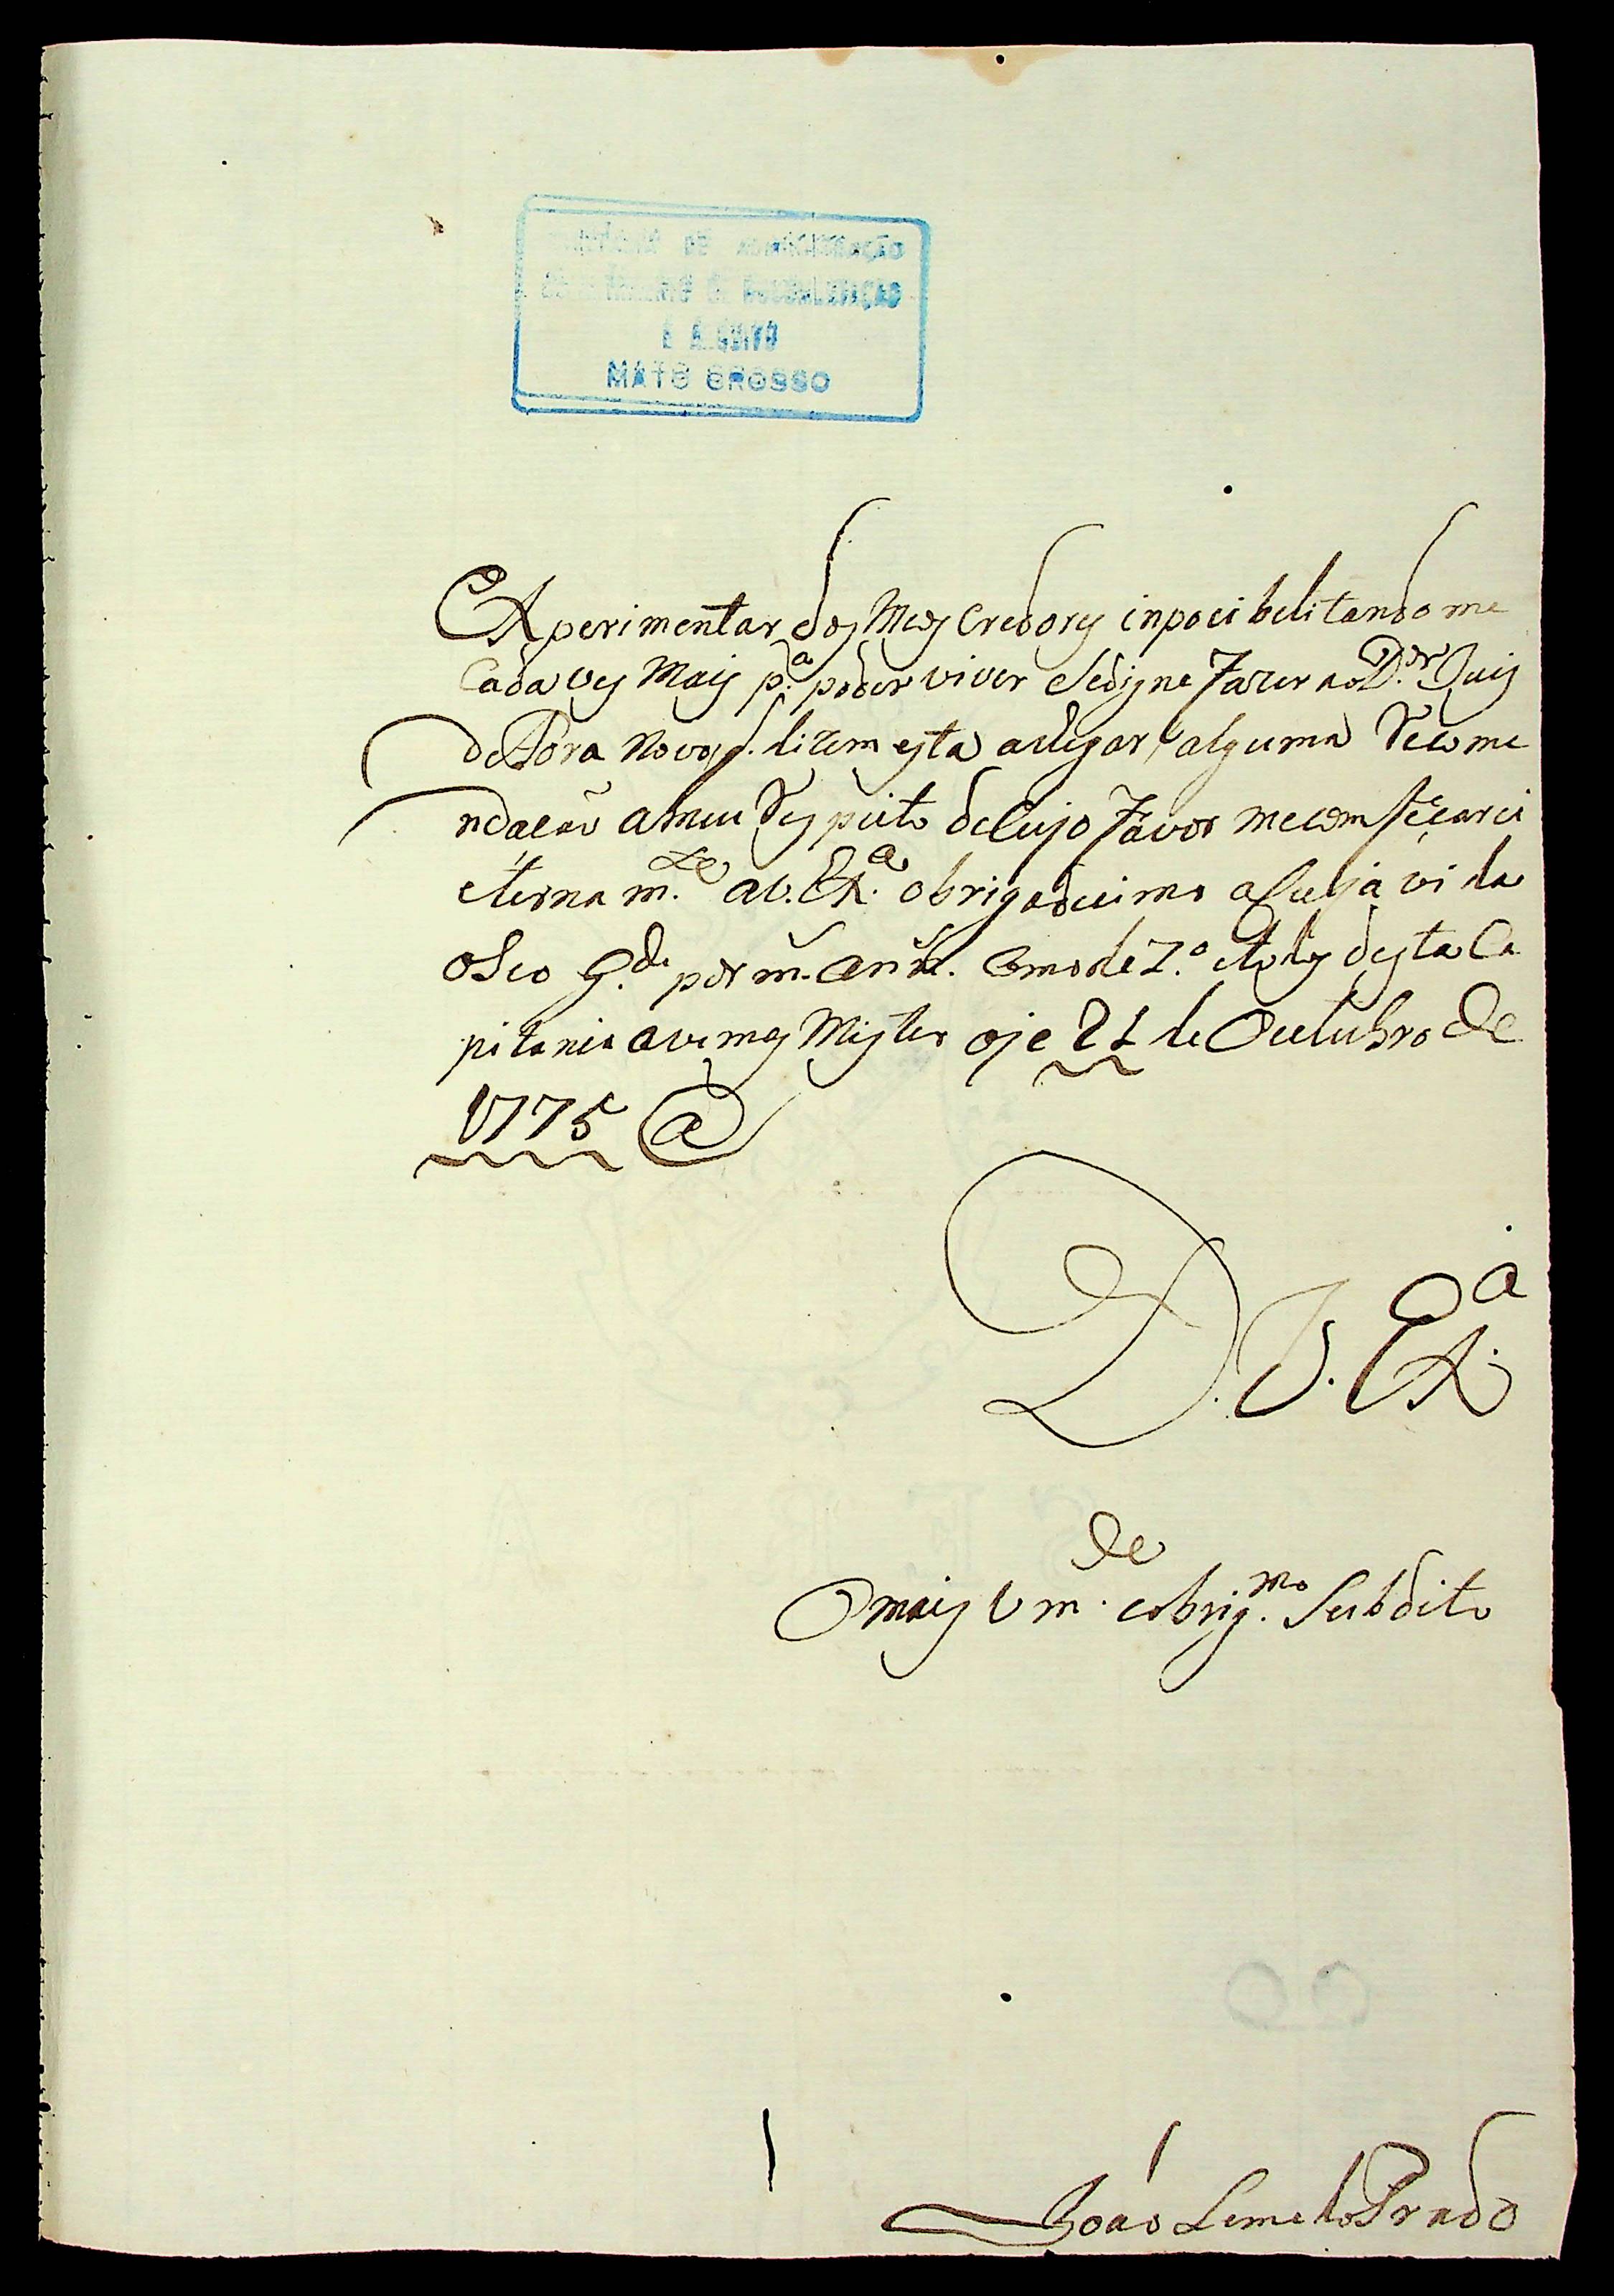 MATO GROSSO
EXperimentar dos Meos Credores inpocibelitandome
Cada ves Mais p.ª poder viver eSedigne Fazer ao D.or Juis
de Fora Novo q. dizem esta achegar, alguma Recome
ndacaõ ameu Respeito deCujo Favor mecomfeçarei
eterna m.te aV. EX.ª obrigadicimo aCuja vida
oSeo G.de por m. ann. Como de Z.º etodos desta Ca
pitania avemos Mister oje 21 de Outubro de
1775
D. V. EX.ª
Omais Um.de eobrig.mo Subdito
Joao Leme do Prado